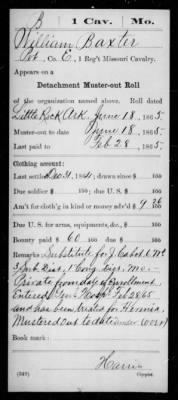 B 1 Cav. Mo.
William Baxter
Pvt, Co. E, 1 Reg't Missouri Cavalry.
Appears on a
Detachment Muster-out Roll
of the organization named above. Roll dated
Little Rock Ark. June 18, 1865.
Muster-out to date June 18, 1865.
Last paid to Feb 28, 1865.
Clothing account:
Last settled Dec 31, 1864; drawn since $ 100
Due soldier $ 100; due U. S. $ 100
Am't for cloth'g in kind or money adv'd $ 9 26 100
Due U. S. for arms, equipments, &c., $ 100
Bounty paid $ 60 100; due $ 100
Remarks: Substitute for J. Cabot
3 Sub. Dist. 1 Cong. Dist. Mo.-
Private from day of Enrollment
Entered Gen Hosp'l Feb 28 65
and has been treated for Hernia.
Mustered out to date under
Book mark:
Harris
(342) Copyist.